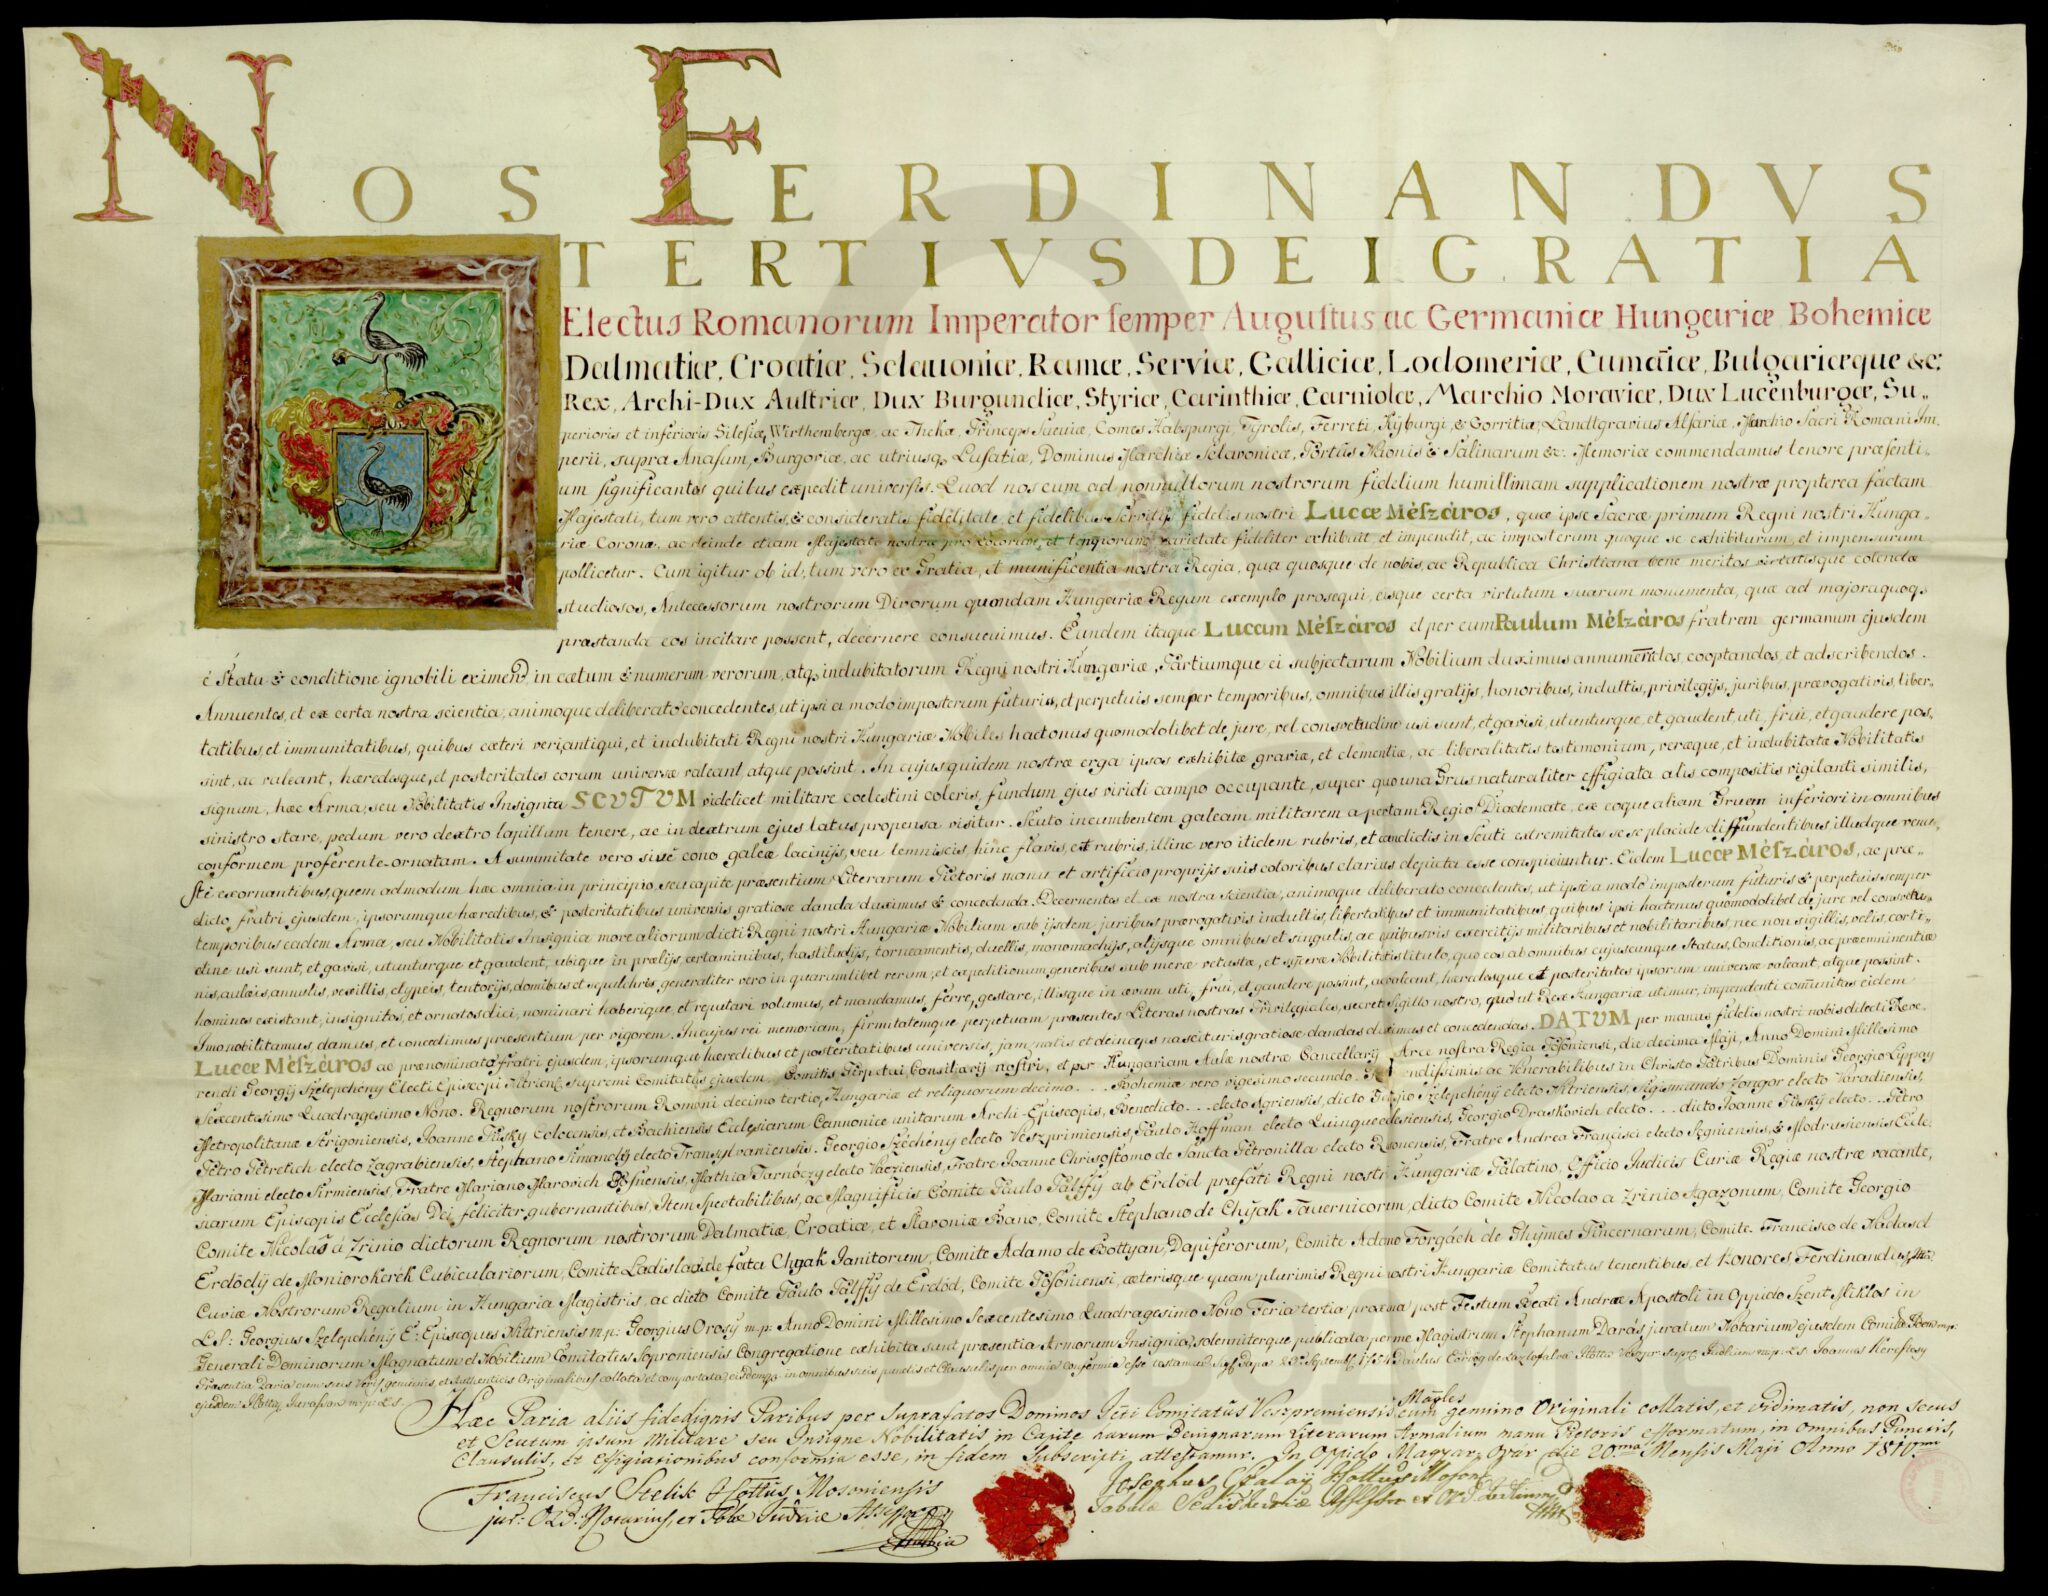 NOS FERDINANDVS
TERTIVS DEI GRATIA
Electus Romanorum Imperator semper Augustus ac Germaniæ Hungariæ Bohemiæ
Dalmatiæ, Croatiæ, Sclavoniæ, Ramæ, Serviæ, Galliciæ, Lodomeriæ, Cumaīæ, Bulgariæque &c:
Rex, Archi-Dux Austriæ, Dux Burgundiæ, Styriæ, Carinthiæ, Carniolæ, Marchio Moraviæ, Dux Lucenburgæ, Su,,
perioris et inferioris Silesiæ, Wirthembergæ, ac Thekæ, Princeps Sueviæ, Comes Habspurgi, Tyrolis, Ferreti, Kÿburgi, & Gorritiæ, Landtgravius Alsatiæ, Marchio Sacri Romani Im,
perii, supra Anasum, Burgoviæ, ac utriusq, Lusatiæ, Dominus Marchiæ Sclavonicæ, Portus Naonis & Salinarum &c: Memoriæ commendamus tenore præsenti,,
um significantes quibus expedit universis. Quod nos cum ad nonnullorum nostrorum fidelium humillimam supplicationem nostræ propterea factam
Majestati, tum vero attentis, & consideratis fidelitate, et fidelibus servitijs fidelis nostri Lucæ Mészáros, quæ ipse Sacræ primum Regni nostri Hunga,
riæ Coronæ, ac deinde etiam Majestati nostræ pro locorum, et temporum varietate fideliter exhibuit, et impendit, ac imposterum quoque se exhibiturum, et impensurum
pollicetur. Cum igitur ob id, tum vero ex Gratia, et munificentia nostra Regia, qua quosque de nobis, ac Republica Christiana bene meritos virtatisque colendæ
studiosos, Antecessorum nostrorum Divorum quondam Hungariæ Regum exemplo prosequi, eisque certa virtutum suarum monumenta, quæ ad majora quoq,
præstanda eos incitare possent, decernere consuevimus. Eundem itaque Lucam Mészáros et per eum Paulum Mészáros fratrem germanum ejusdem
é Statu & conditione ignobili eximend in cœtum & numerum verorum, atq, indubitatorum Regni nostri Hungariæ, Partiumque ei subjectarum Nobilium duximus annumerandos, cooptandos, et adscribendos.
Annuentes, et ex certa nostra scientia, animoque deliberato concedentes, ut ipsi a modo imposterum futuris, et perpetuis semper temporibus, omnibus illis gratijs, honoribus, indultis, privilegijs, juribus, prærogativis, liber,,
tatibus, et immunitatibus, quibus cæteri veri, antiqui, et indubitati Regni nostri Hungariæ Nobiles hactenus quomodolibet de jure, vel consvetudine usi sunt, et gavisi, utunturque, et gaudent, uti, frui, et gaudere pos,
sint, ac valeant, hæredesque, et posteritates eorum universæ valeant, atque possint. In cujus quidem nostræ erga ipsos exhibitæ gratiæ, et clementiæ, ac liberalitatis testimonium, veræque, et indubitatæ Nobilitatis
signum, hæc Arma, seu Nobilitatis Insignia SCUTUM videlicet militare coelestini coloris, fundum ejus viridi campo occupante, super quo una Grus naturaliter effigiata alis compositis vigilanti similis,
sinistro stare, pedum vero dextro lapillum tenere, ac in dextrum ejus latus propensa visitur. Scuto incumbentem galeam militarem apertam Regio Diademate, ex eoque aliam Gruem inferiori in omnibus
conformem proferente ornatam. A summitate vero sive cono galeæ laciniis, seu lemniscis, hinc flavis, et rubris, illinc vero itidem rubris, et candidis in Scuti extremitates sese placide diffundentibus, illudque venu,,
ste exornantibus, quemadmodum hæc omnia in principio, seu capite præsentium Literarum Pictoris manu et artificio proprijs suis coloribus clarius depicta esse conspiciuntur. Eidem Lucæ Mészáros, ac præ,,
dicto, fratri ejusdem, ipsorumque hæredibus, & posteritatibus universis gratiose danda duximus & concedenda. Decernentes et ex nostra scientia, animoque deliberato concedentes, ut ipsi a modo imposterum futuris & perpetuis semper
temporibus eadem Arma, seu Nobilitatis Insignia more aliorum dicti Regni nostri Hungariæ Nobilium sub ijsdem, juribus prærogativis indultis, libertatibus et immunitatibus, quibus ipsi hactenus quomodolibet de jure vel consvetu,
dine usi sunt, et gavisi, utunturque et gaudent, ubique in prælijs, certaminibus, hastiludijs, torneamentis, duellis, monomachijs, alijsque omnibus et singulis, ac quibusvis exercitijs militaribus et nobilitaribus, nec non sigillis, velis, corti,,
nis, aulæis, annulis, vexillis, clypeis, tentorijs, domibus et sepulchris, generaliter vero in quarumlibet rerum, et expeditionum generibus sub meræ vetustæ, et synceræ Nobilitatis titulo, quo eos ab omnibus cujuscunque Status, Conditionis, ac præeminentiæ
homines existant, insignitos, et ornatos dici, nominari haberique, et reputari volumus, et mandamus, ferre, gestare, illisque in ævum uti, frui, et gaudere possint, ac valeant, hæredesque et posteritates ipsorum universæ valeant, atque possint.
Imo nobilitamus damus, et concedimus præsentium per vigorem. In cujus rei memoriam, firmitatemque perpetuam præsentes Literas nostras Privilegiales, secret Sigillo nostro, quo ut Rex Hungariæ utimur, impendenti comunitas eidem
Lucæ Mészáros ac prænominato fratri ejusdem, ipsorumque hæredibus et posteritatibus universis, jam natis et deinceps nascituris gratiose dandas duximus et concedendas. DATUM per manus fidelis nostri nobis dilecti Reve,
rendi Georgij Szelepchény Electi Episcopi Nitriens, Supremi Comitatus ejusdem, Comitis Perpetui, Consiliarij nostri, et per Hungariam Aulæ nostræ Cancellarij Arce nostra Regia Posoniensi, die decima Maji, Anno Domini Millesimo
Sexcentesimo Quadragesimo Nono. Regnorum nostrorum Romani decimo tertio, Hungariæ et reliquorum decimo . . . Bohemiæ vero vigesimo secundo. Reverendissimis ac Venerabilibus in Christo Patribus Dominis Georgio Lippay
Metropolitanæ Strigoniensis, Joanne Püsky Colocensis, et Bachiensis Ecclesiarum Cannonice unitarum Archi-Episcopis, Benedicto . . . electo Agriensis, dicto Georgio Szelepchény electo Nitriensis, Sigismundo Zongor electo Varadiensis,
Petro Petretich electo Zagrabiensis, Stephano Simandij electo Transylvaniensis. Georgio Széchény electo Veszprimiensis, Paulo Hoffman electo Quinqueclesiensis, Georgio Draskovich electo . . . dicto Joanne Püsky electo . . . Petro
Mariani electo Sirmiensis, Fratre Mariano Marovich Bosnensis, Mathia Tarnóczy electo Vacziensis, Fratre Joanne Chrisostomo de Sancta Petronilla electo Rosonensis, Fratre Andrea Francisci electo Segniensis, & Modrusiensis Eccle,
siarum Episcopis Ecclesias Dei feliciter gubernantibus, Item Spectabilibus, ac Magnificis Comite Paulo Palffÿ ab Erdöd præfati Regni nostri Hungariæ Palatino, Officio Judicis Curiæ Regiæ nostræ vacante,
Comite Nicolao á Zrinio dictorum Regnorum nostrorum Dalmatiæ, Croatiæ, et Slavoniæ Bano, Comite Stephano de Chÿak Tavernicorum, dicto Comite Nicolao a Zrinio Agazonum, Comite Georgio
Erdödij de Moniorokerék Cubiculariorum, Comite Ladislao de feta Chyak Janitorum, Comite Adamo de Bottyan, Dapiferorum, Comite Adamo Forgách de Ghymes Pincernarum, Comite Francisco de Nadasd
Curiæ Nostrorum Regalium in Hungaria Magistris, ac dicto Comite Paulo Palffÿ de Erdöd, Comite Posoniensi, cæterisque quam plurimis Regni nostri Hungariæ Comitatus tenentibus, et Honores. Ferdinandus mp:
L.S: Georgius Szelepchény E: Episcopus Nittriensis mp: Georgius Orosy mp: Anno Domini Millesimo Sexcentesimo Quadragesimo Nono Feria tertia proxima post Festum Beati Andreæ Apostoli in Oppido Szent Miklos in
Generali Dominorum Magnatum et Nobilium Comitatus Soproniensis Congregatione exhibita sunt præsentia Armorum Insignia, solenniterque publicata per me Magistrum Stephanum Darás juratum Notarium ejusdem Comitatus mp:
Præsentia Paria cum suis Veris genuinis, et Authenticis Originalibus collata et comportata, eisdemq, in omnibus suis punctis et Clausulis per omnia conformia esse testamur. Papa Joannes Kéresztesy
ejusdem mp: L.S.
Hæc Paria aliis fidedignis Paribus per Suprafatos Dominos Icti Comitatûs Veszpremiensis Magles cum genuino Originali collatis, et vidimatis, non secus
et Scutum ipsum Militare seu Insigne Nobilitatis in Capite harum Benignarum Literarum Armalium manu Pictoris efformatum, in omnibus Punctis,
Clausulis, et Effigiationibus conformia esse, in fidem Subscripti attestamur. In Oppido Magyar Óvár die 20ma Mensis Maji Anno 1810mo
Franciscus Stelik I. Cottus Mosoniensis
jur: Ord: Notarius, et Tabæ Judriæ Assessor
Josephus Czalaÿ I. Cottus Moson
Tabulæ Sedis Judriæ Assessor et Ord.